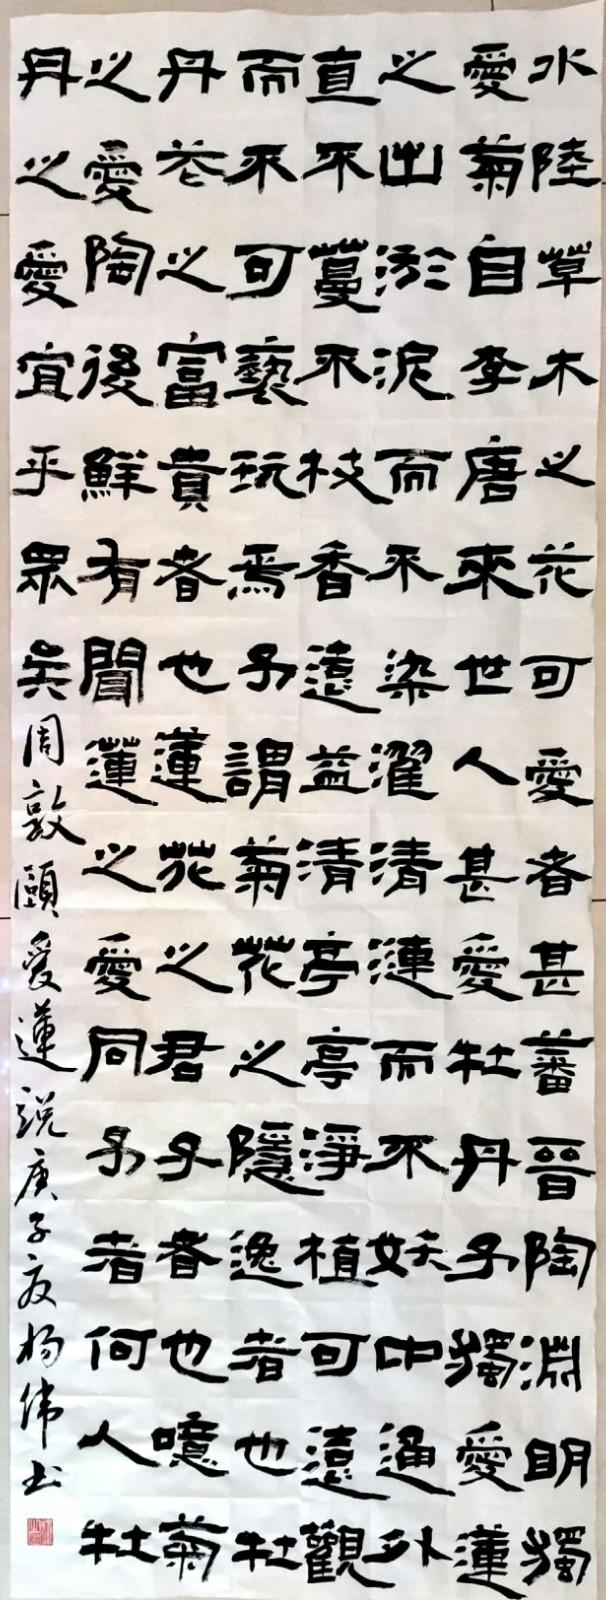 水陸草木之花可愛者甚蕃晉陶淵明獨
愛菊自李唐來世人甚愛牡丹予獨愛蓮
之出淤泥而不染濯清漣而不妖中通外
直不蔓不枝香遠益清亭亭淨植可遠觀
而不可褻玩焉予謂菊花之隱逸者也牡
丹花之富貴者也蓮花之君子者也噫菊
之愛陶後鮮有聞蓮之愛同予者何人牡
丹之愛宜乎眾矣周敦頤愛蓮說庚子夏杨伟书